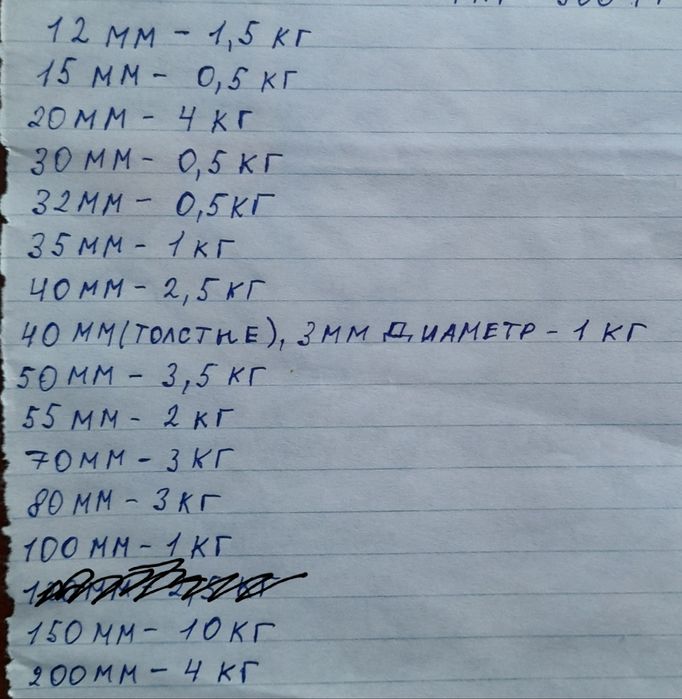 12 мм - 1,5 кг
15 мм - 0,5 кг
20 мм - 4 кг
30 мм - 0,5 кг
32 мм - 0,5 кг
35 мм - 1 кг
40 мм - 2,5 кг
40 мм (толстые), 3 мм диаметр - 1 кг
50 мм - 3,5 кг
55 мм - 2 кг
70 мм - 3 кг
80 мм - 3 кг
100 мм - 1 кг
150 мм - 10 кг
200 мм - 4 кг